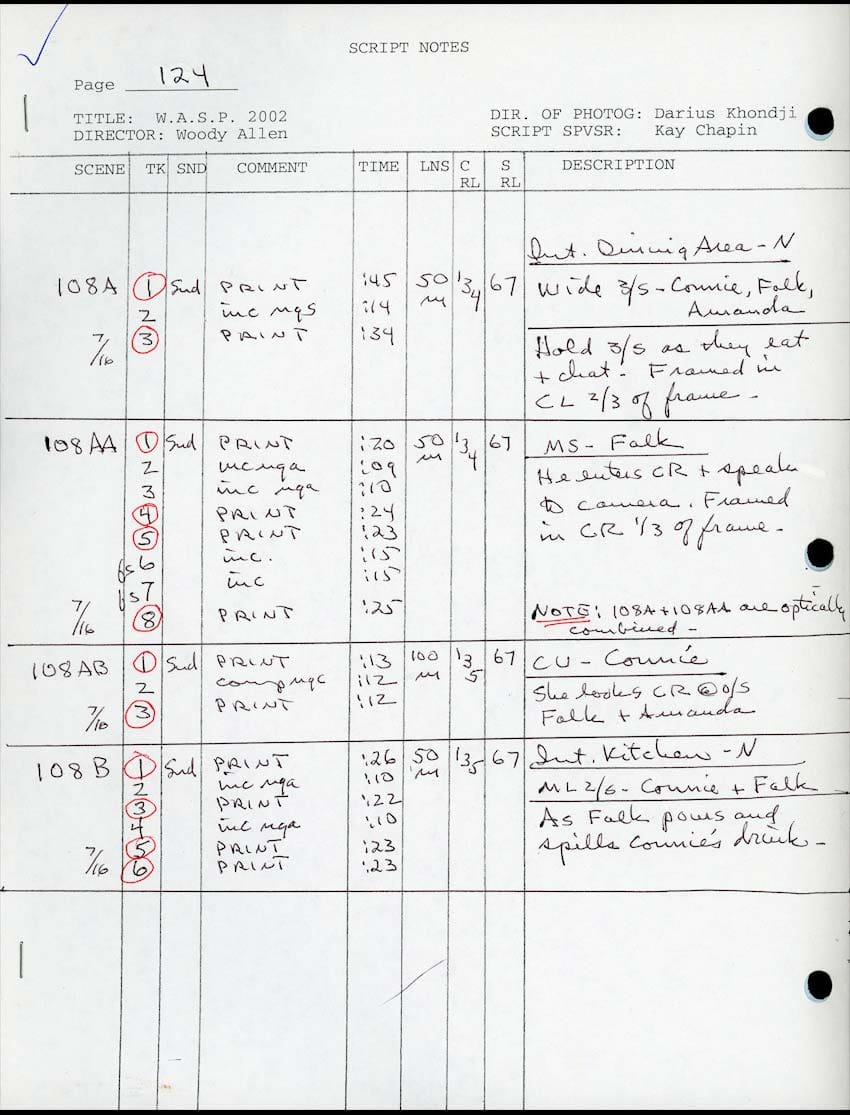 SCRIPT NOTES
Page 124
TITLE: W.A.S.P. 2002 DIR. OF PHOTOG: Darius Khondji
DIRECTOR: Woody Allen SCRIPT SPVSR: Kay Chapin
SCENE TK SND COMMENT TIME LNS C S DESCRIPTION
RL RL
Int. Dining Area - N
108A 1 Snd PRINT :45 50 134 67 Wide 3/s - Connie, Falk,
2 inc ngs :14 m Amanda
7/16 3 PRINT :34
Hold 3/s as they eat
+ chat - Framed in
CL 2/3 of frame -
108AA 1 Snd PRINT :20 50 134 67 MS - Falk
2 inc nga :09 m He enters CR + speaks
3 inc nga :10 to camera. Framed
4 PRINT :24 in CR 1/3 of frame -
5 PRINT :23
fs 6 inc. :15
fs 7 inc :15
7/16 8 PRINT :25 NOTE: 108A + 108AA are optically
combined -
108AB 1 Snd PRINT :13 100 135 67 CU - Connie
2 comp ngc :12 m She looks CR @ o/s
7/16 3 PRINT :12 Falk + Amanda
108B 1 Snd PRINT :26 50 135 67 Int. Kitchen - N
2 inc nga :10 m ML 2/s - Connie + Falk
3 PRINT :22 As Falk pours and
4 inc nga :10 spills Connie's drink -
5 PRINT :23
7/16 6 PRINT :23